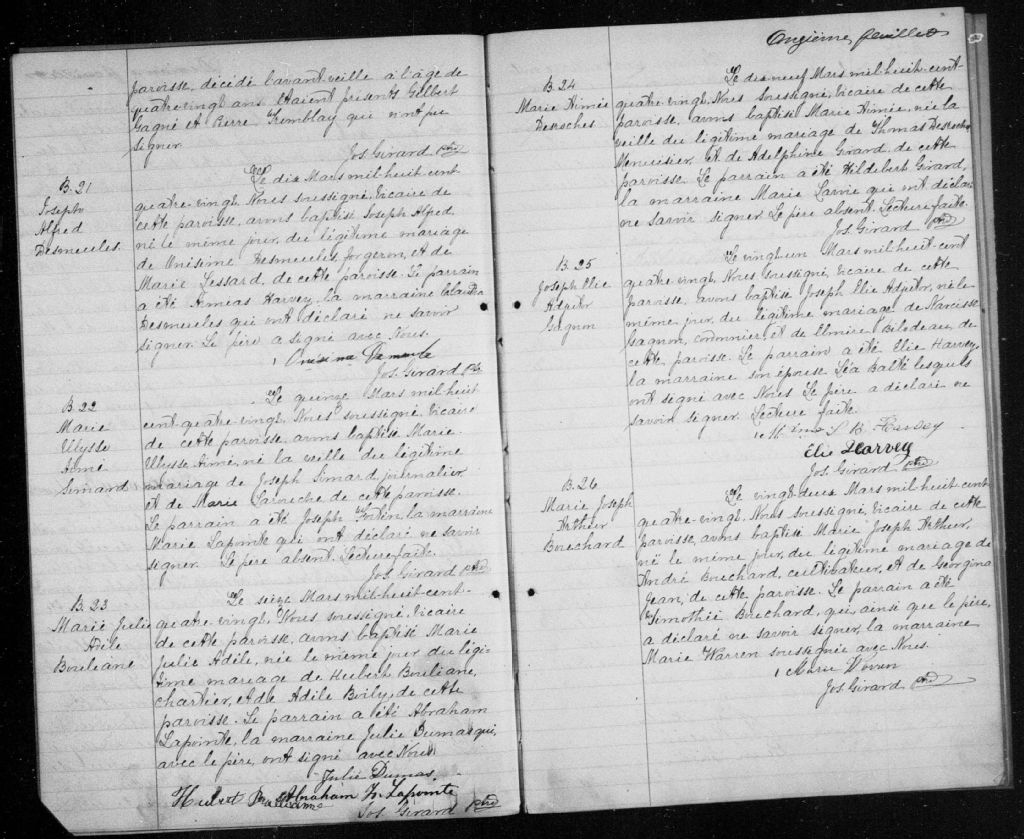 paroisse, décédé l'avant-veille à l'âge de
quatre-vingt ans. Étaient présents Gilbert
Gagné et Pierre Tremblay qui n'ont pu
signer.
Jos. Girard Ptre
B. 21
Joseph
Alfred
Desmeules
Le dix Mars mil-huit-cent-
quatre-vingt, Nous soussigné, Vicaire de
cette paroisse, avons baptisé Joseph Alfred,
né le même jour, du légitime mariage
de Onisime Desmeules, forgeron, et de
Marie Lessard, de cette paroisse. Le parrain
a été Harvey, la marraine
Desmeules qui ont déclaré ne savoir
signer. Le père a signé avec Nous.
Onisime
Jos. Girard Ptre
B. 22
Marie
Ulysse
Aimé
Simard
Le quinze Mars mil-huit
cent-quatre-vingt, Nous soussigné, Vicaire
de cette paroisse, avons baptisé Marie
Ulysse Aimé, né la veille du légitime
mariage de Joseph Simard, journalier
et de Marie Larouche de cette paroisse.
Le parrain a été Joseph Fortin, la marraine
Marie Lapointe qui ont déclaré ne savoir
signer. Le père absent. Lecture faite.
Jos. Girard Ptre
B. 23
Marie Julie
Adèle
Bouliane
Le seize Mars mil-huit-cent-
quatre-vingt, Nous soussigné, Vicaire
de cette paroisse, avons baptisé Marie
Julie Adèle, née le même jour du légi-
time mariage de Hubert Bouliane,
chartier, et de Adèle Boily, de cette
paroisse. Le parrain a été Abraham
Lapointe, la marraine Julie Dumas qui,
avec le père, ont signé avec Nous.
Julie Dumas.
Hubert Abraham Lapointe
Jos. Girard Ptre
Onzième feuillet
B. 24
Marie Aimée
Desroches
Le dix-neuf Mars mil-huit-cent-
quatre-vingt, Nous soussigné, Vicaire de cette
paroisse, avons baptisé Marie Aimée, née la
veille du légitime mariage de Thomas Desroches
Menuisier, et de Adelphine Girard de cette
paroisse. Le parrain a été Hildebert Girard,
la marraine Marie Lavoie qui ont déclaré
ne savoir signer. Le père absent. Lecture faite.
Jos. Girard Ptre
B. 25
Joseph Elie
Adjutor
Gagnon
Le vingt-un Mars mil-huit-cent
quatre-vingt, Nous soussigné, Vicaire de cette
paroisse, avons baptisé Joseph Elie Adjutor, né le
même jour, du légitime mariage de Narcisse
Gagnon, cordonnier, et de Elmire Bilodeau, de
cette paroisse. Le parrain a été Elie Harvey,
la marraine son épouse Léa lesquels
ont signé avec Nous. Le père a déclaré ne
savoir signer. Lecture faite.
Elie Harvey
Jos. Girard Ptre
B. 26
Marie Joseph
Arthur
Bouchard
Le vingt-deux Mars mil-huit-cent
quatre-vingt, Nous soussigné, Vicaire de cette
paroisse, avons baptisé Marie Joseph Arthur,
né le même jour, du légitime mariage de
André Bouchard, cultivateur, et de Georgina
Jean, de cette paroisse. Le parrain a été
Timothée Bouchard, qui, ainsi que le père,
a déclaré ne savoir signer, la marraine
Marie Warren soussignée avec Nous.
Marie
Jos. Girard Ptre